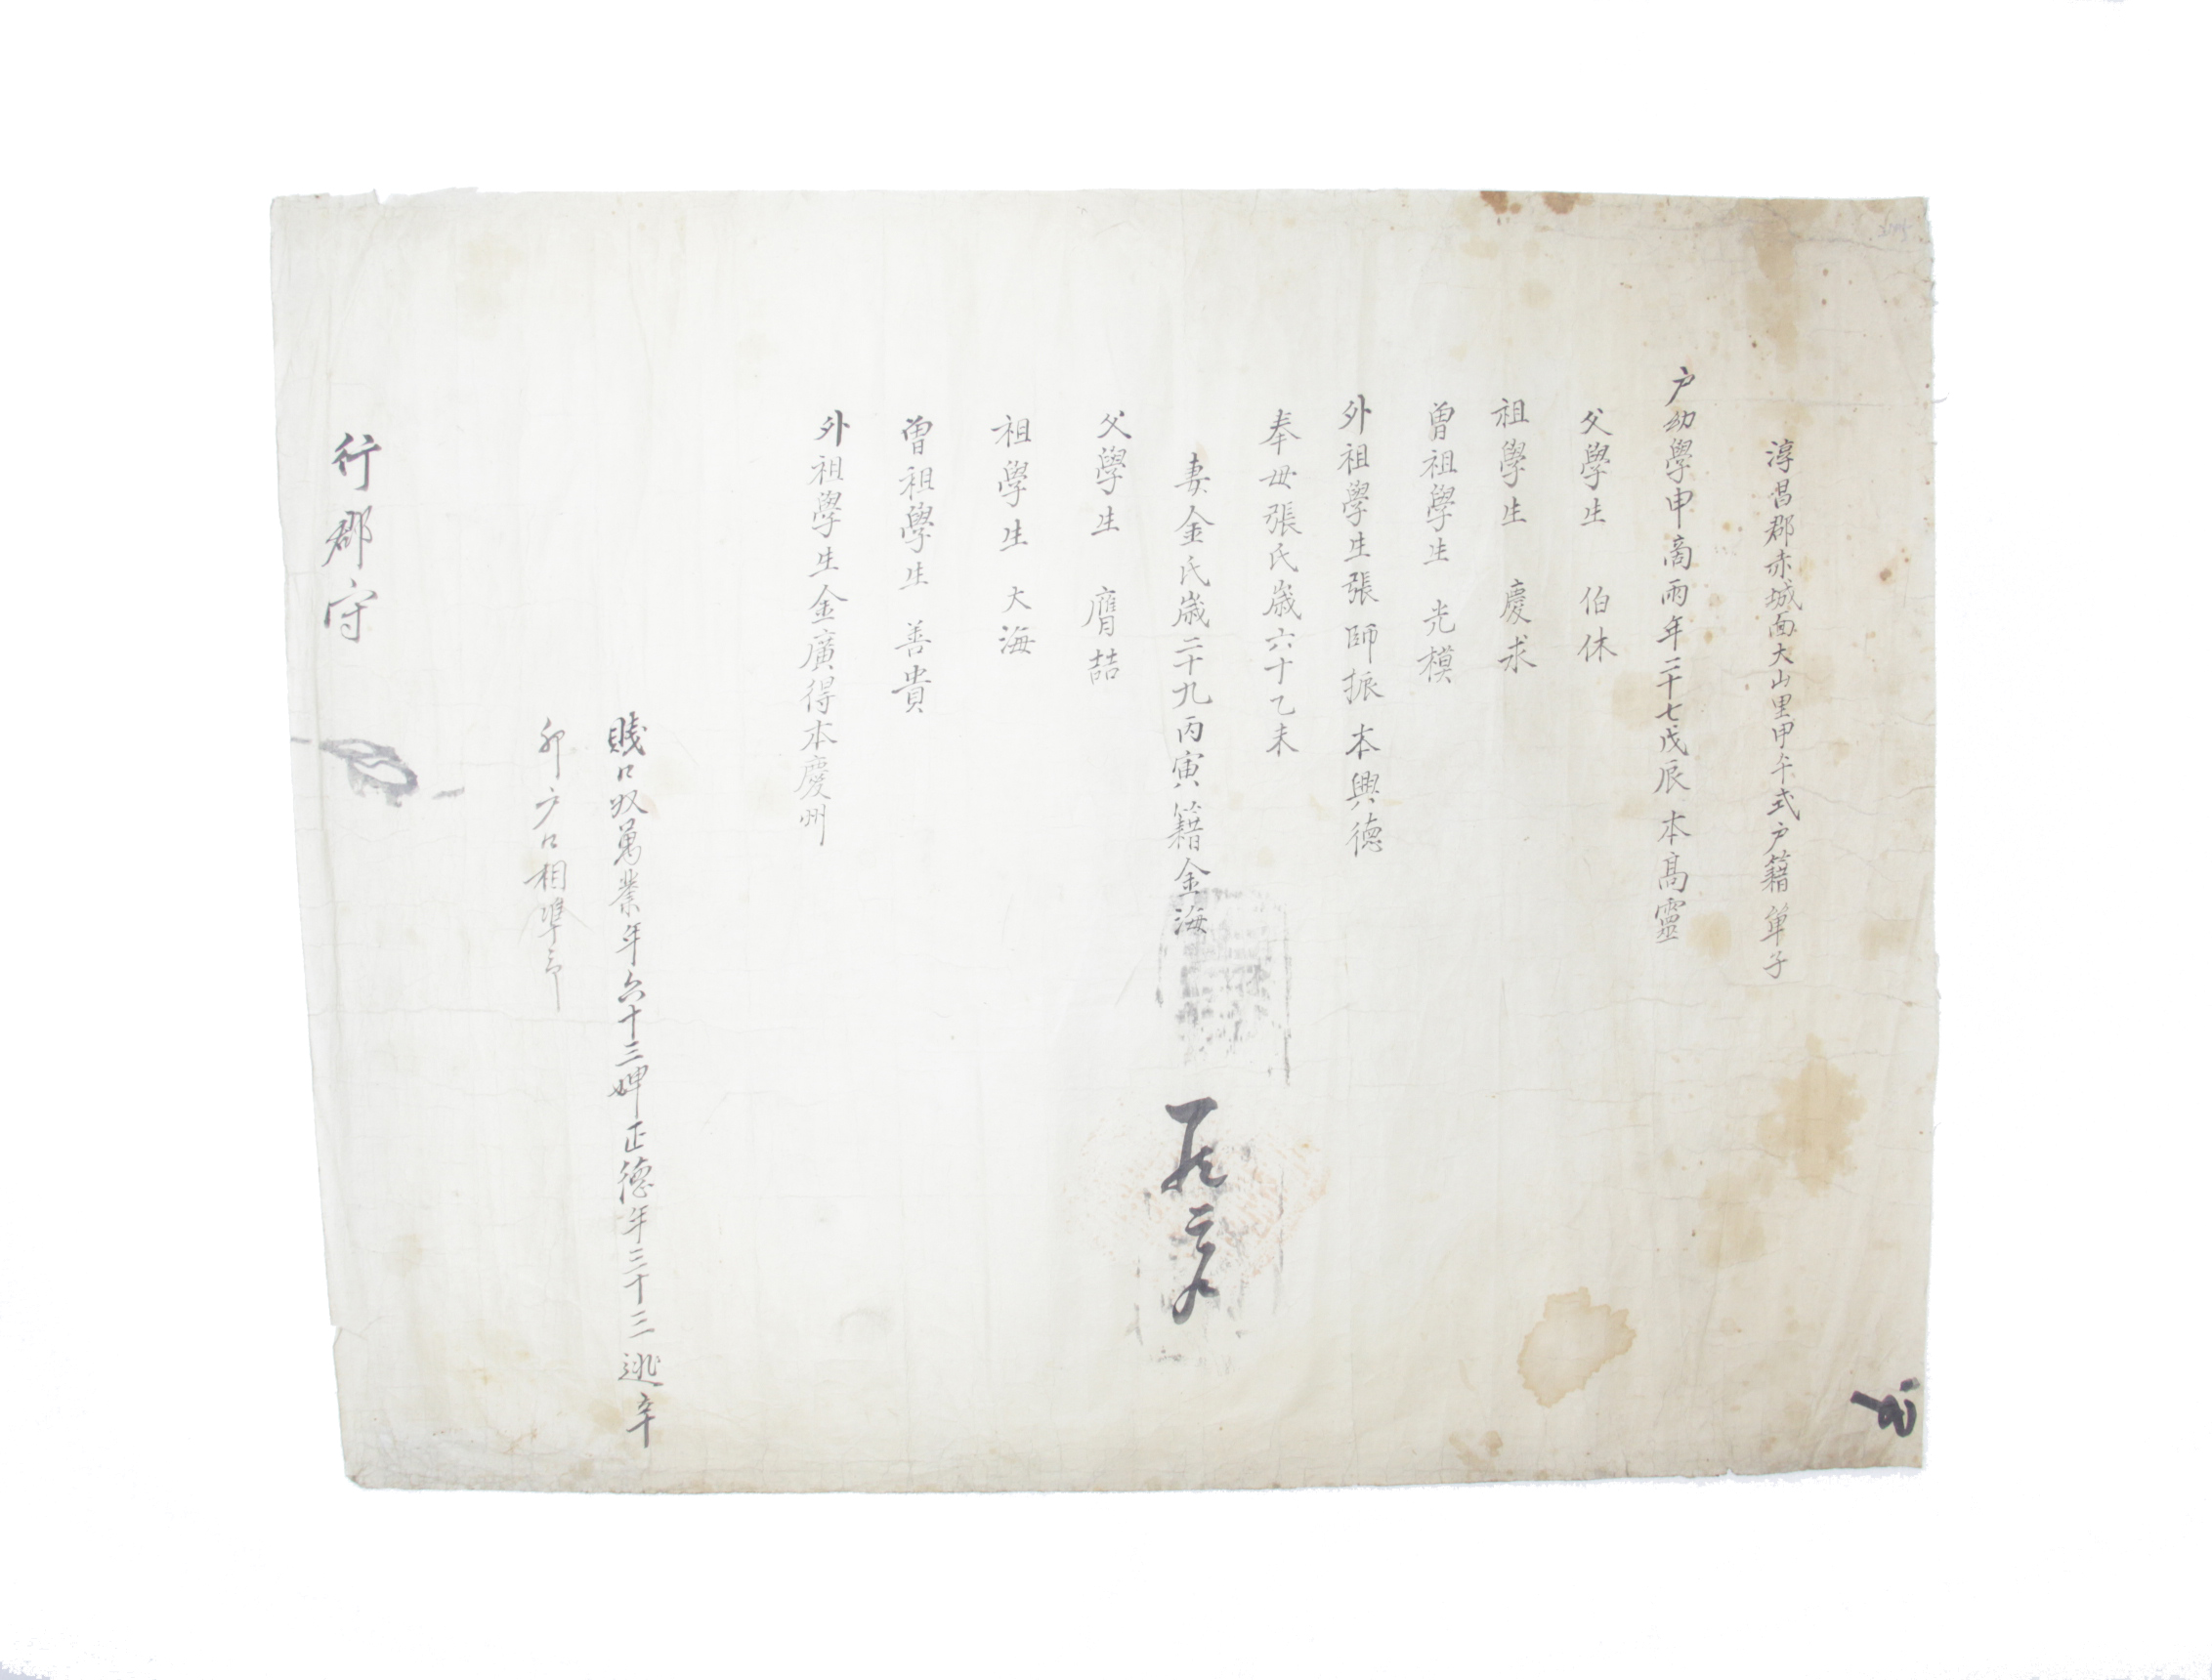 淳昌郡赤城面大山里甲午式户籍單子
户幼學申商雨年二十七戊辰本高靈
父學生 伯休
祖學生 慶求
曾祖學生 光模
外祖學生張師振本興德
奉母張氏歲六十乙未
妻金氏歲二十九丙寅籍金海
父學生 膺喆
祖學生 大海
曾祖學生 善貴
外祖學生金廣得本慶州
賤口奴萬業年六十三婢正德年三十三逃辛
卯户口相準印
行郡守